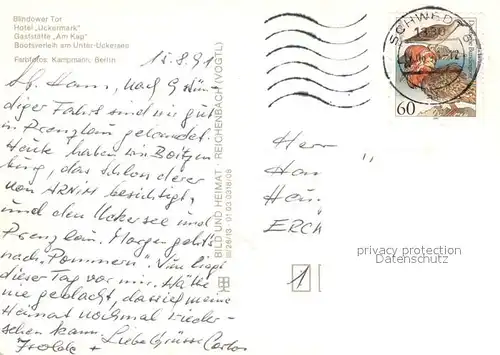 Blindower Tor
Hotel „Uckermark"
Gaststätte „Am Kap"
Bootsverleih am Unter-Uckersee
Farbfotos: Kampmann, Berlin
15.8.91
nach 9 stün
diger Fahrt sind wir gut
in Prenzlau gelandet.
Heute haben wir Boitzen
burg, das Schloss derer
von ARNIM besichtigt,
und den Uckersee und
Prenzlau. Morgen geht's
nach „Pommern". Nun liegt
dieser Tag vor mir. Hätte
nie gedacht, dass ich meine
Heimat nochmal wieder-
sehen kann. Liebe Grüsse
Isolde +
BILD UND HEIMAT · REICHENBACH (VOGTL)
SCHWEDT
60
Herr
ERCK
privacy protection
Datenschutz
1